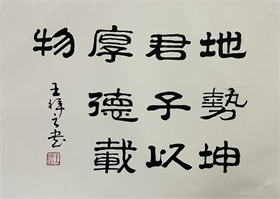 地勢坤
君子以
厚德載
物
王祥之书